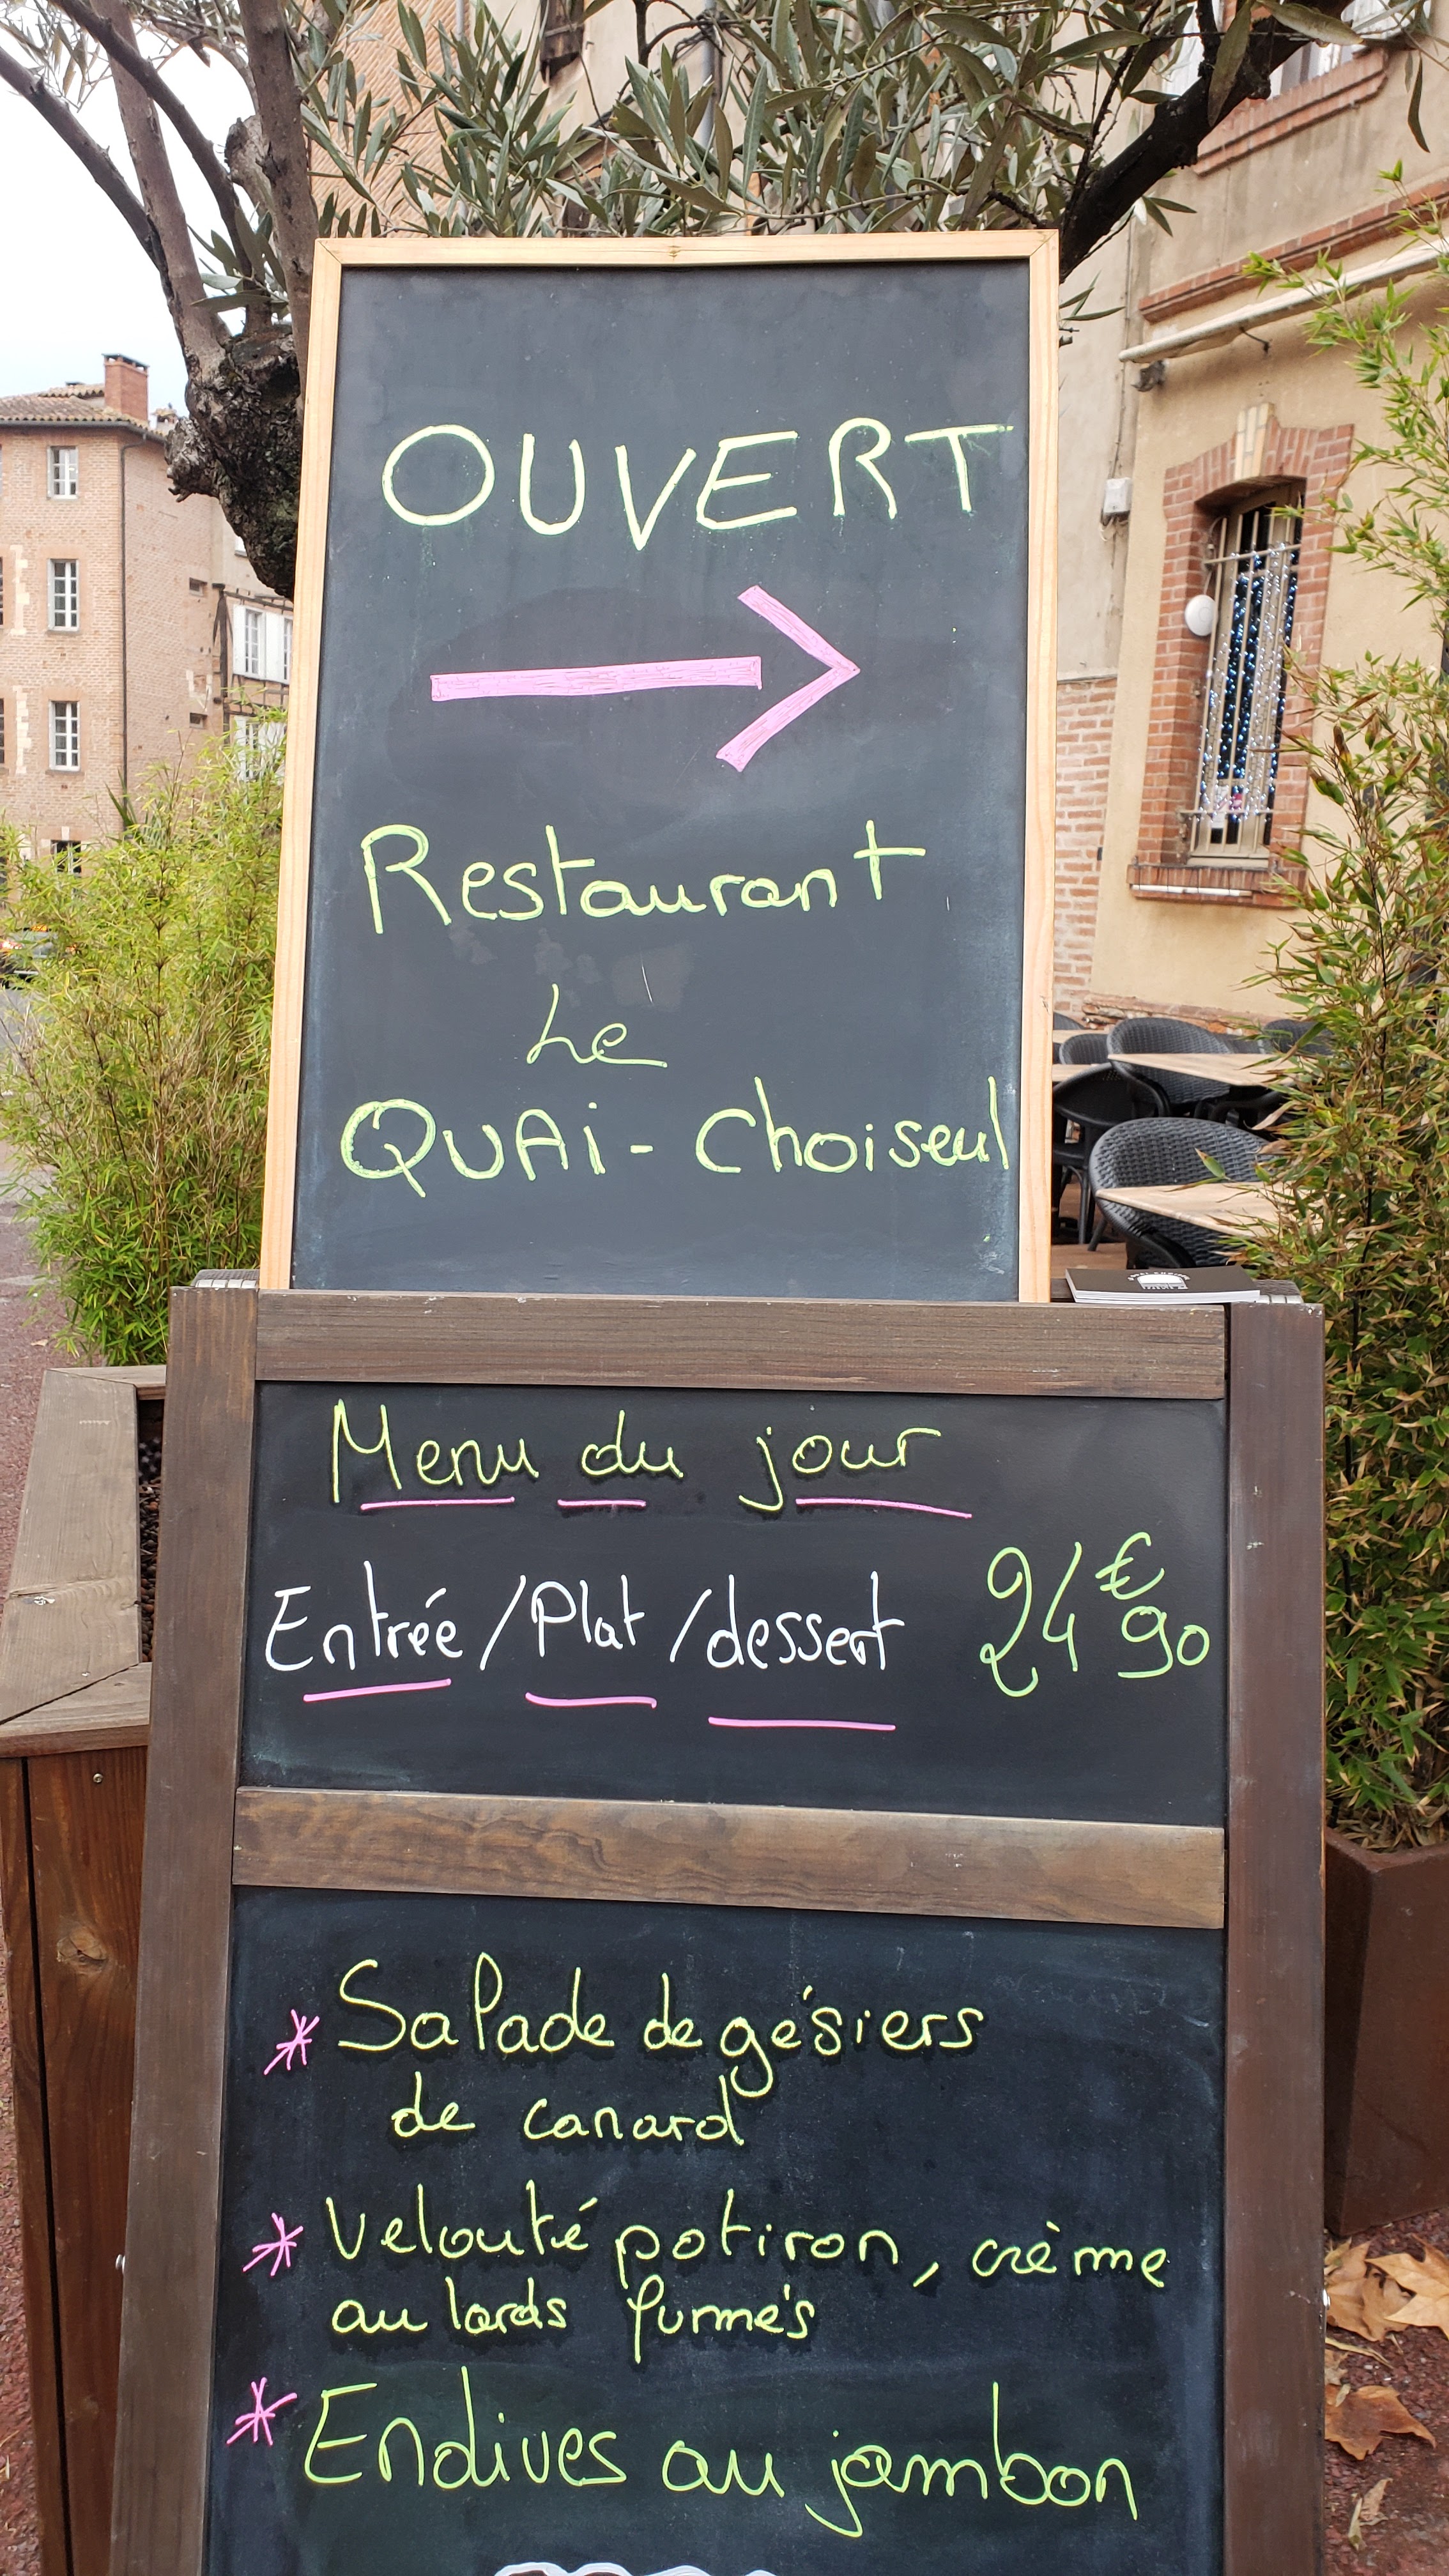 OUVERT
Restaurant
Le
QUAi - Choiseul
Menu du jour
Entrée / Plat / dessert 24€90
* Salade de gésiers
de canard
* Velouté potiron, crème
au lards fumés
* Endives au jambon